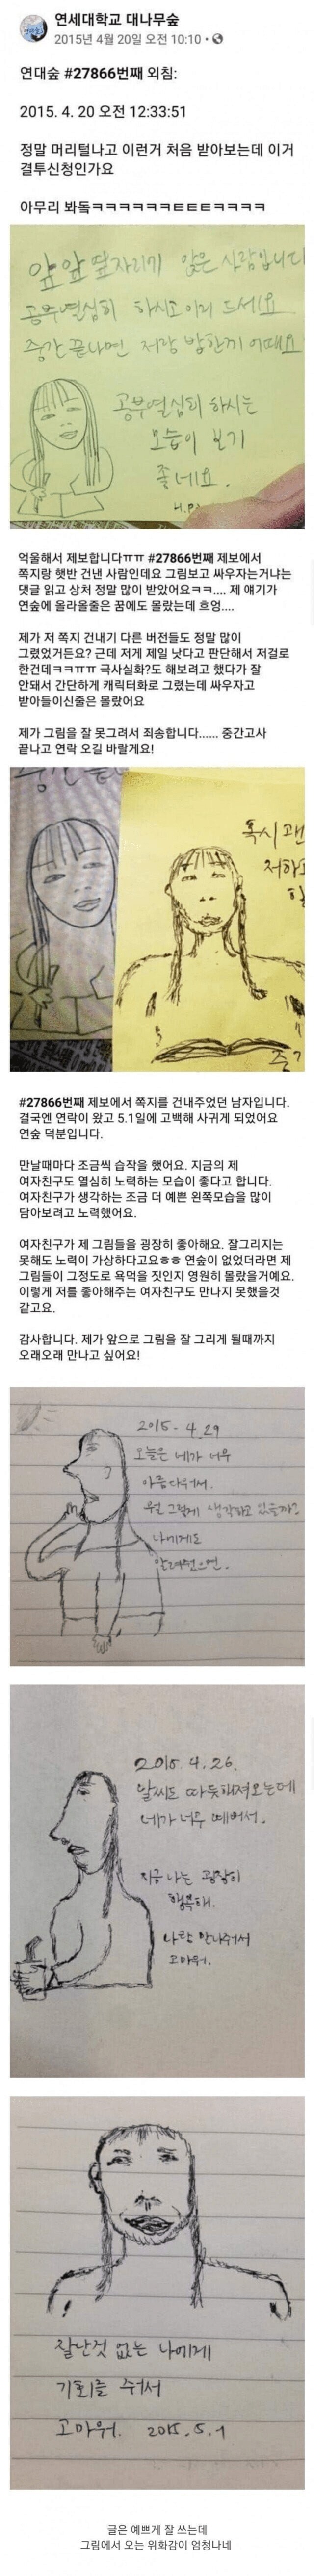 연세대학교 대나무숲
2015년 4월 20일 오전 10:10 ·
연대숲 #27866번째 외침:
2015. 4. 20 오전 12:33:51
정말 머리털나고 이런거 처음 받아보는데 이거
결투신청인가요
앞앞 앞자리에 앉은 사람입니다
공부열심히 하시고 이거 드세요
중간 끝나면 저랑 밥한끼 어때요
공부열심히 하시는
모습이 보기
좋네요.
억울해서 제보합니다ㅠㅠ #27866번째 제보에서
쪽지랑 햇반 건낸 사람인데요 그림보고 싸우자는거냐는
댓글 읽고 상처 정말 많이 받았어요ㅋㅋ.... 제 얘기가
연숲에 올라올줄은 꿈에도 몰랐는데 흐엉....
제가 저 쪽지 건내기 다른 버전들도 정말 많이
그렸었거든요? 근데 저게 제일 낫다고 판단해서 저걸로
한건데ㅋㅋㅠㅠ 극사실화?도 해보려고 했다가 잘
안돼서 간단하게 캐릭터화로 그렸는데 싸우자고
받아들이신줄은 몰랐어요
제가 그림을 잘 못그려서 죄송합니다...... 중간고사
끝나고 연락 오길 바랄게요!
혹시 괜
저하고
#27866번째 제보에서 쪽지를 건내주었던 남자입니다.
결국엔 연락이 왔고 5.1일에 고백해 사귀게 되었어요
연숲 덕분입니다.
만날때마다 조금씩 습작을 했어요. 지금의 제
여자친구도 열심히 노력하는 모습이 좋다고 합니다.
여자친구가 생각하는 조금 더 예쁜 왼쪽모습을 많이
담아보려고 노력했어요.
여자친구가 제 그림들을 굉장히 좋아해요. 잘그리지는
못해도 노력이 가상하다고요ㅎㅎ 연숲이 없었더라면 제
그림들이 그정도로 욕먹을 짓인지 영원히 몰랐을거예요.
이렇게 저를 좋아해주는 여자친구도 만나지 못했을것
같고요.
감사합니다. 제가 앞으로 그림을 잘 그리게 될때까지
오래오래 만나고 싶어요!
2015. 4. 29
오늘은 네가 너무
아름다워서.
뭘 그렇게 생각하고 있을까?
나에게도
알려줬으면.
2015. 4. 26.
날씨도 따뜻해져오는데
네가 너무 예뻐서.
지금 나는 굉장히
행복해.
나랑 만나줘서
고마워.
잘난것 없는 나에게
기회를 줘서
고마워. 2015. 5. 1
글은 예쁘게 잘 쓰는데
그림에서 오는 위화감이 엄청나네